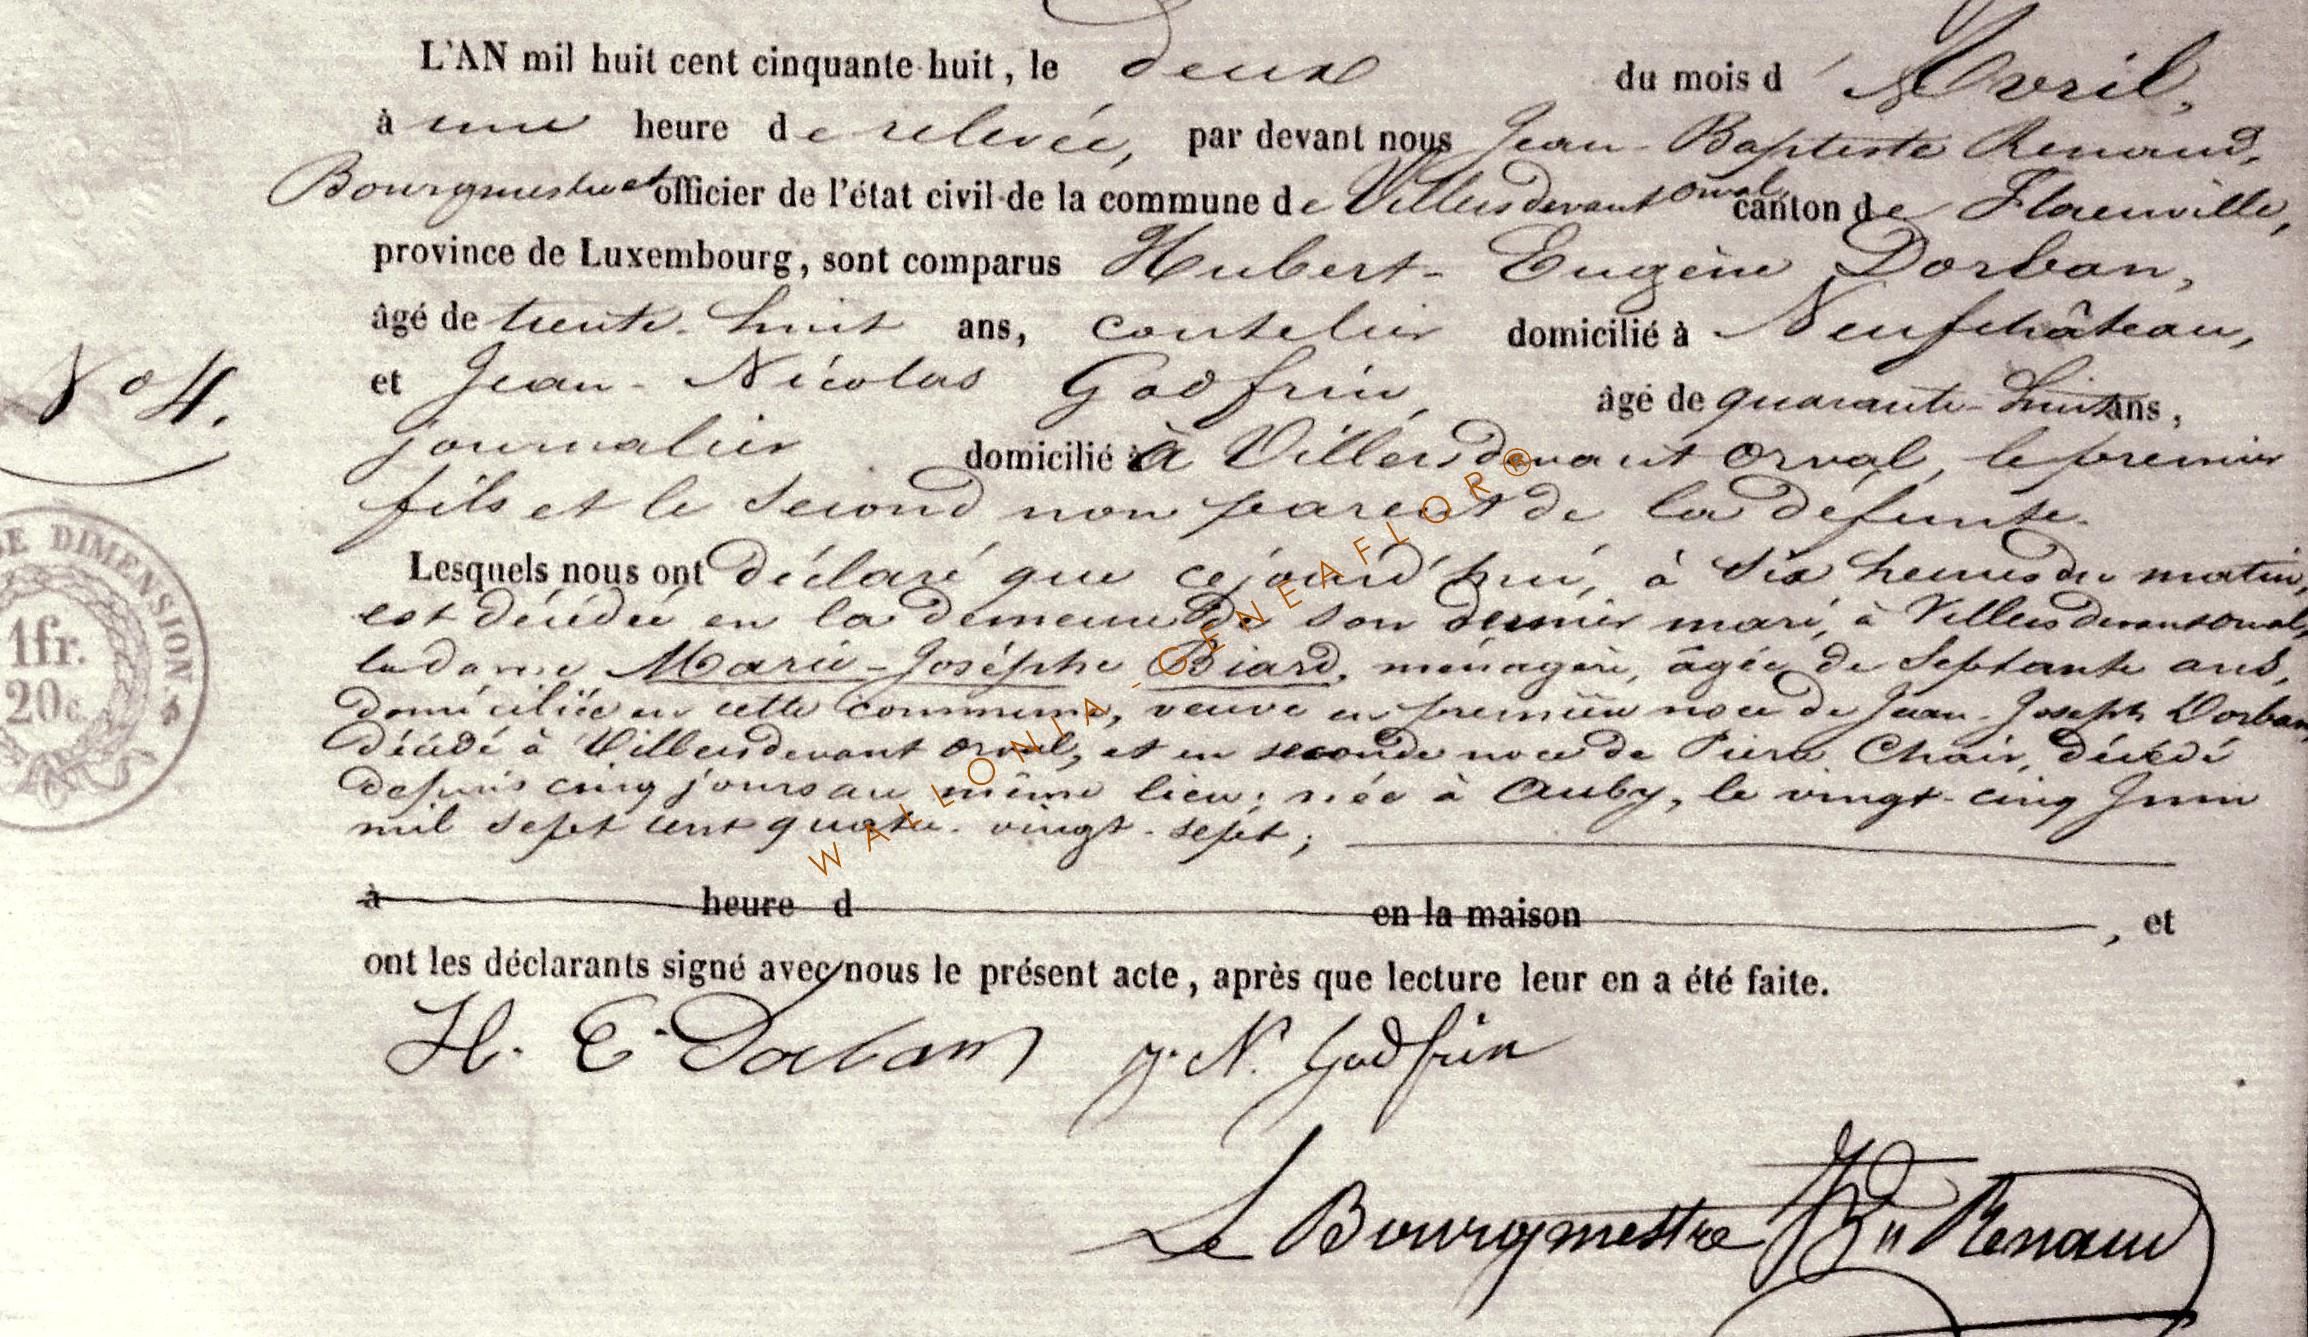 L'AN mil huit cent cinquante-huit, le deux du mois d'Avril,
à une heure de relevée, par devant nous Jean-Baptiste Renaud,
Bourgmestre et officier de l'état civil de la commune de Villers devant Orval, canton de Florenville,
province de Luxembourg, sont comparus Hubert-Eugène Dorban,
âgé de trente-huit ans, coutelier domicilié à Neufchâteau,
et Jean-Nicolas Godfrin, âgé de quarante-huit ans,
N° 4.
journalier domicilié à Villers devant Orval, le premier
fils et le second non parent de la défunte.
Lesquels nous ont déclaré que cejourd'hui, à six heures du matin,
est décédée en la demeure de son dernier mari, à Villers devant Orval,
la dame Marie-Joséphe Biard, ménagère, âgée de septante ans,
domiciliée en cette commune, veuve en première noce de Jean-Joseph Dorban,
décédé à Villers devant Orval, et en seconde noce de Piere Chair, décédé
depuis cinq jours au même lieu; née à Auby, le vingt-cinq Juin
mil sept cent quatre-vingt-sept;
à heure d en la maison , et
ont les déclarants signé avec nous le présent acte, après que lecture leur en a été faite.
H. E. Dorban J. N. Godfrin
Le Bourgmestre JBte Renaud
DIMENSION
1fr.
20c.
WALLONIA-GENEAFLOR®